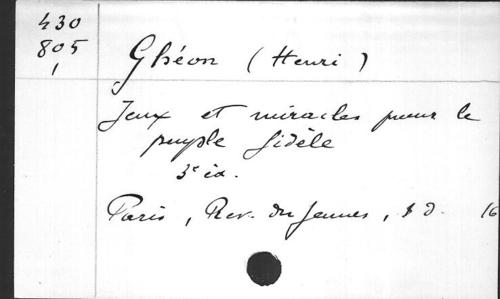 430
805
1
Ghéon (Henri)
Jeux et miracles pour le
peuple fidèle
3e éd.
Paris, Rev. des Jeunes, s d. 16